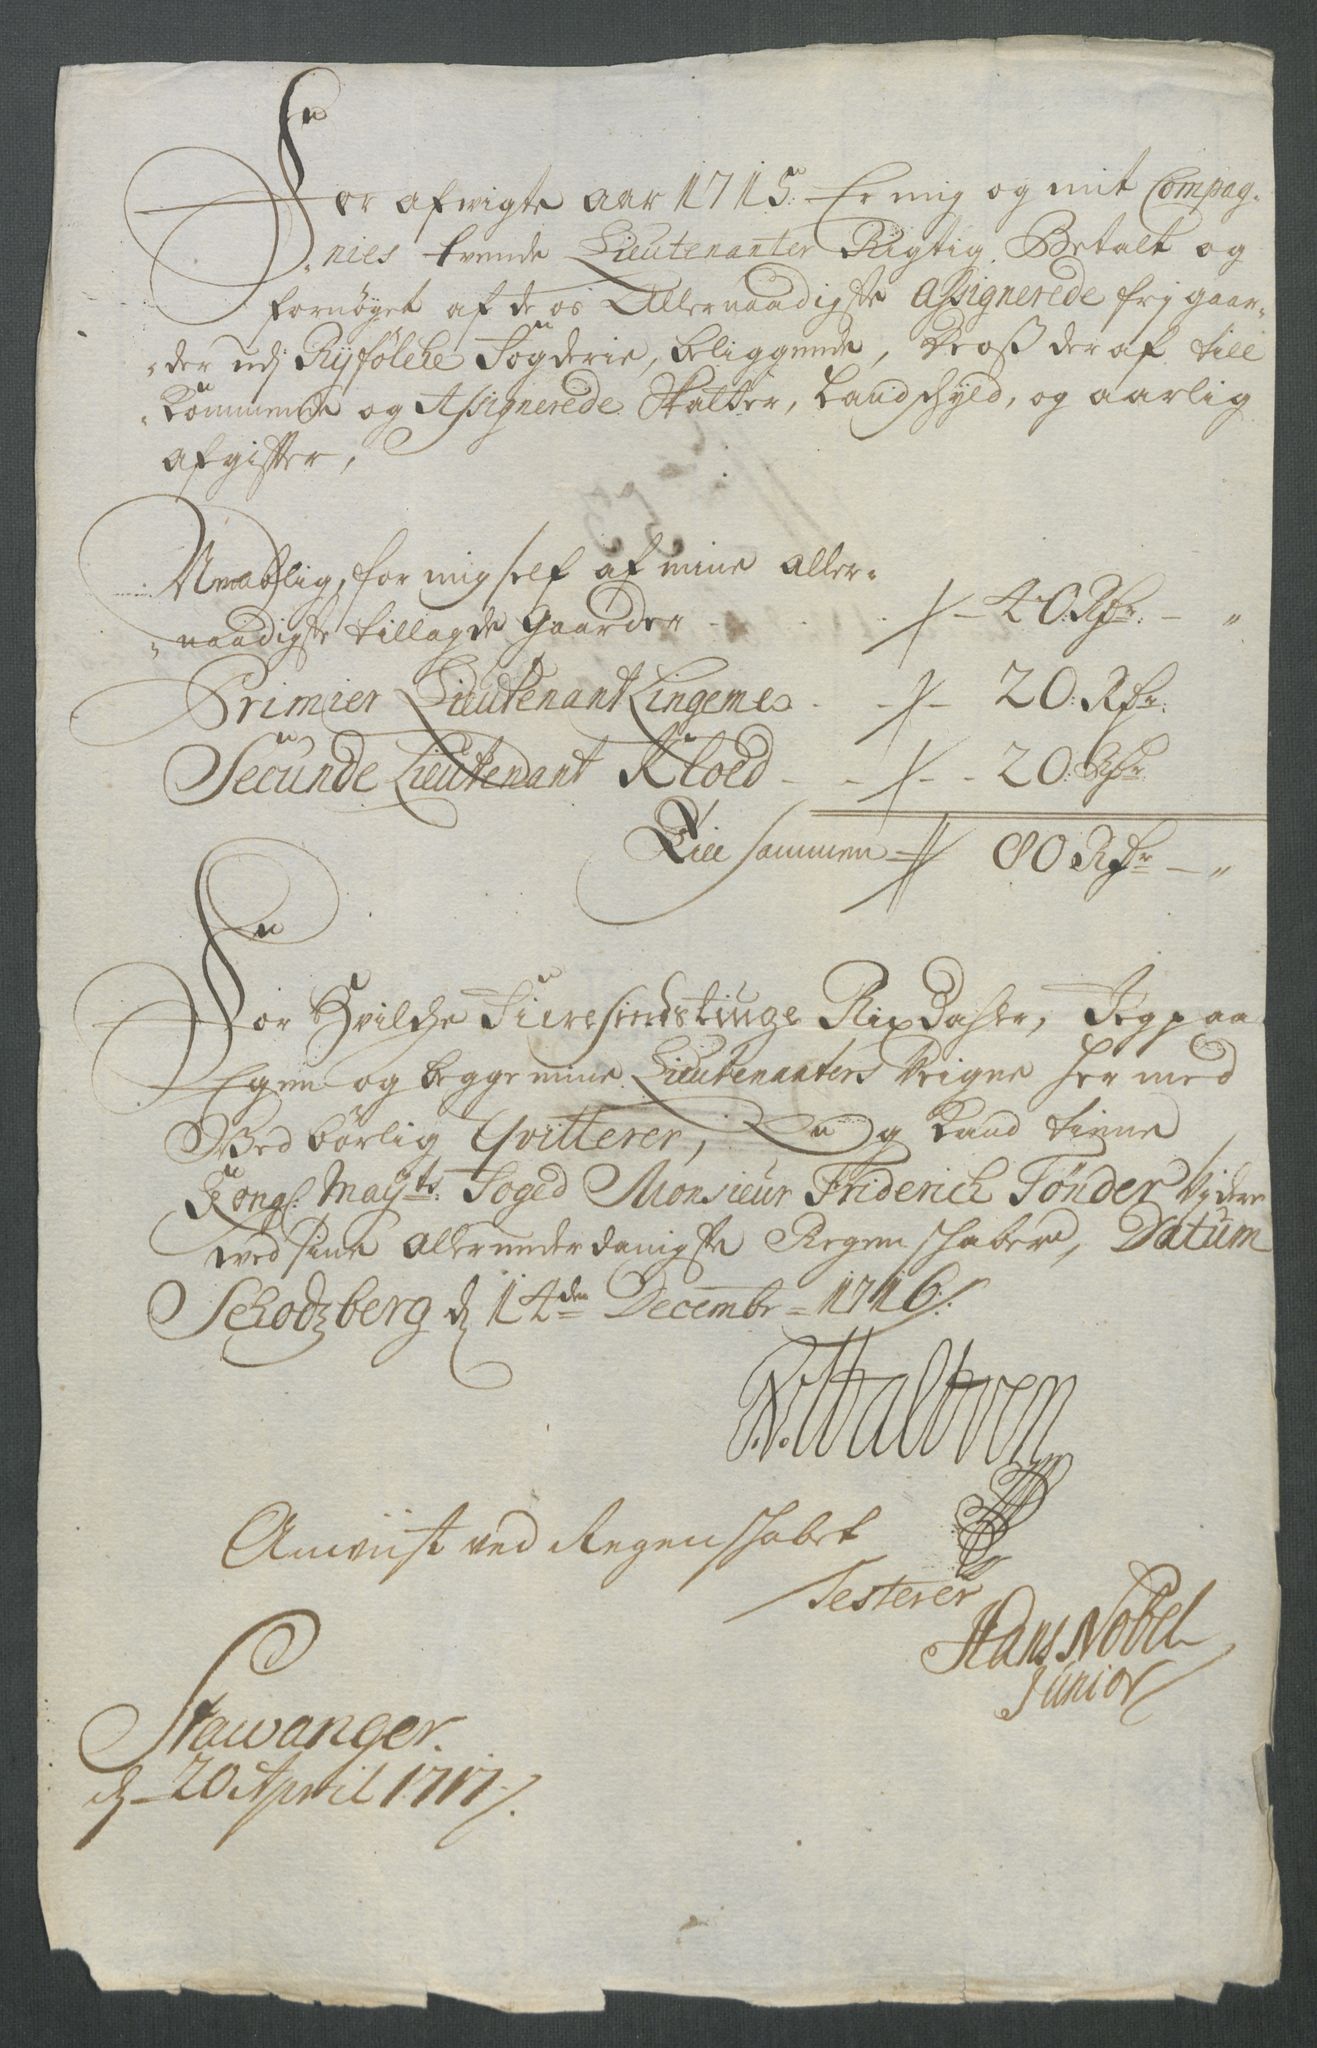 For afvigte aar 1715. Er mig og mit Compag-
nies tvende Lieutenanter Rigtig Betalt og
fornöyet af de os Allernaadigste Assignerede frj gaar-
der udj Ryfölche Fogderie, beliggende, deraf till
kommende og Assignerede Skatter, Landschyld, og aarlig
afgifter,
Nemblig, for mig self af mine aller-
naadigste tillagde Gaarder - 40 Rdr: - "
Primier Lieutenant Lingemes - 20: Rdr:
Secunde Lieutenant Kloed - - 20: Rdr
Till sammen 80 Rdr - "
For Hvilche Fieresindstiuge Rix Daler, Jeg paa
Egen og begge mine Lieutenanters Veigne her med
Bedbörlig Qvitterer, og kand tiene
Kongl: Mayts Foged Monsieur Friderich Tönder
ved sine allerunderdanigste Regenschaber, Datum
Schodzberg d 14den Decembr 1716.

Anviist ved Regenschabet
Testerer
Hans Nobel
Junior
Stawanger.
d 20 April 1717.